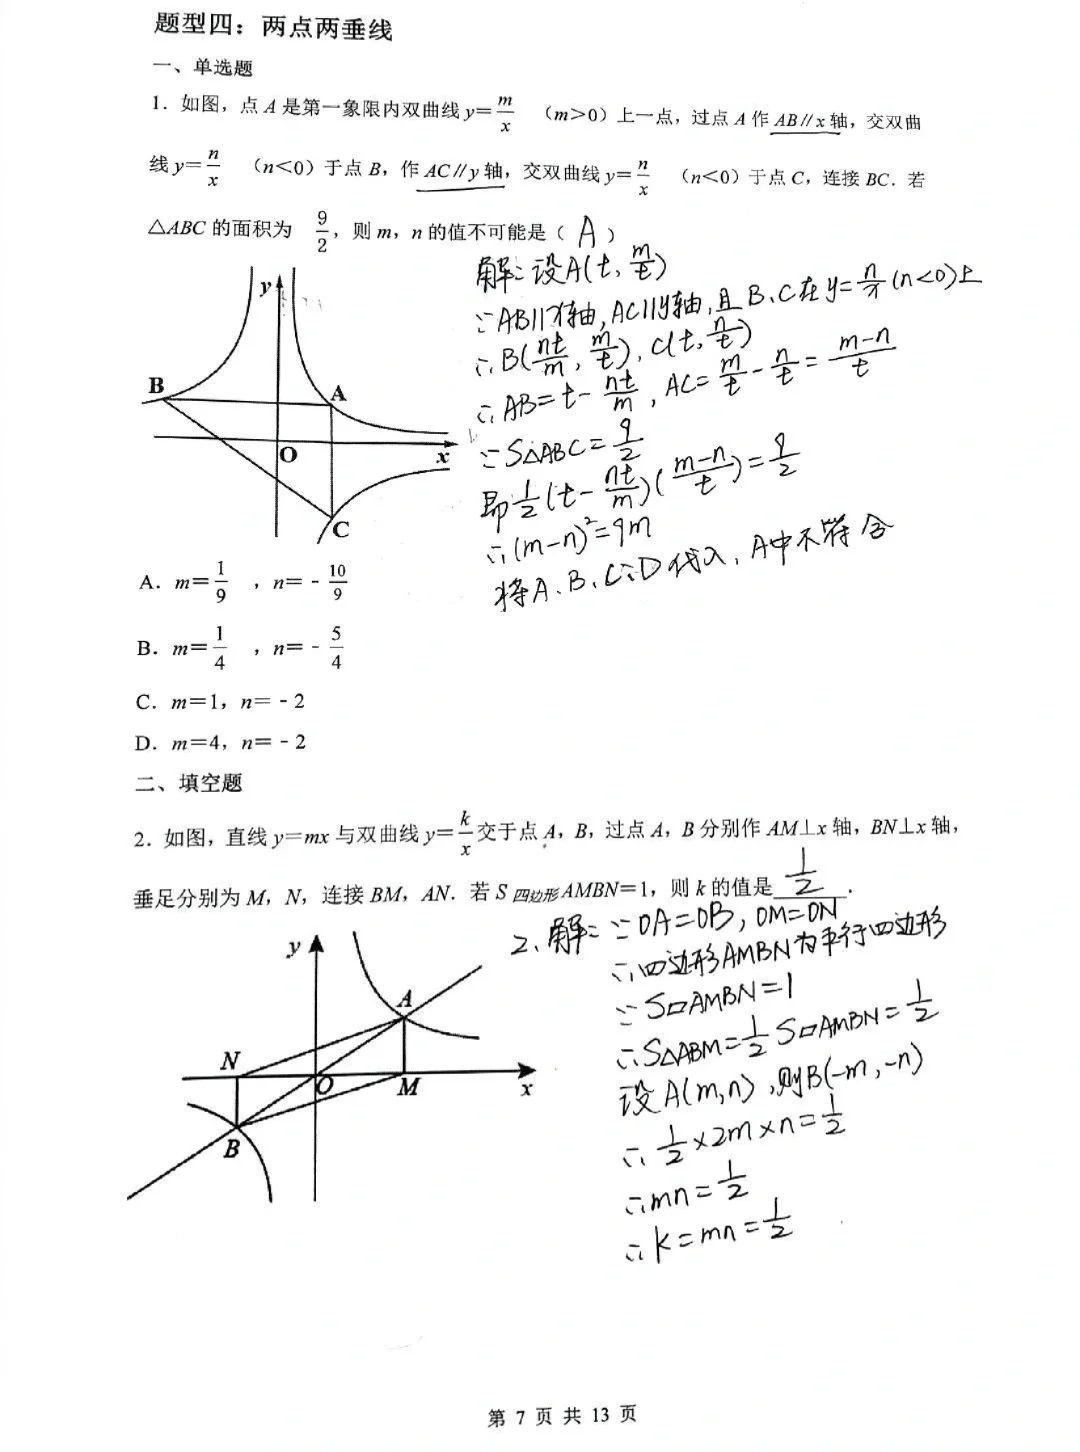 题型四：两点两垂线
一、单选题
1．如图，点 A 是第一象限内双曲线 y＝m/x （m＞0）上一点，过点 A 作 AB∥x 轴，交双曲
线 y＝n/x （n＜0）于点 B，作 AC∥y 轴，交双曲线 y＝n/x （n＜0）于点 C，连接 BC．若
△ABC 的面积为 9/2，则 m，n 的值不可能是（ A ）
解：设A(t, m/t)
∵AB∥x轴, AC∥y轴, 且B、C在y=n/x(n<0)上
∴B(nt/m, m/t), C(t, n/t)
∴AB=t-nt/m, AC=m/t-n/t=m-n/t
∵S△ABC=9/2
即1/2(t-nt/m)(m-n/t)=9/2
∴(m-n)²=9m
将A、B、C、D代入, A中不符合
y
B
A
O
x
C
A．m＝1/9 ，n＝﹣10/9
B．m＝1/4 ，n＝﹣5/4
C．m＝1，n＝﹣2
D．m＝4，n＝﹣2
二、填空题
2．如图，直线 y＝mx 与双曲线 y＝k/x 交于点 A，B，过点 A，B 分别作 AM⊥x 轴，BN⊥x 轴，
垂足分别为 M，N，连接 BM，AN．若 S四边形AMBN＝1，则 k 的值是 1/2 ．
2、解：∵OA=OB, OM=ON
∴四边形AMBN为平行四边形
∵S▱AMBN=1
∴S△ABM=1/2 S▱AMBN=1/2
设A(m,n), 则B(-m,-n)
∴1/2×2m×n=1/2
∴mn=1/2
∴k=mn=1/2
y
A
N
O
M
x
B
第 7 页 共 13 页